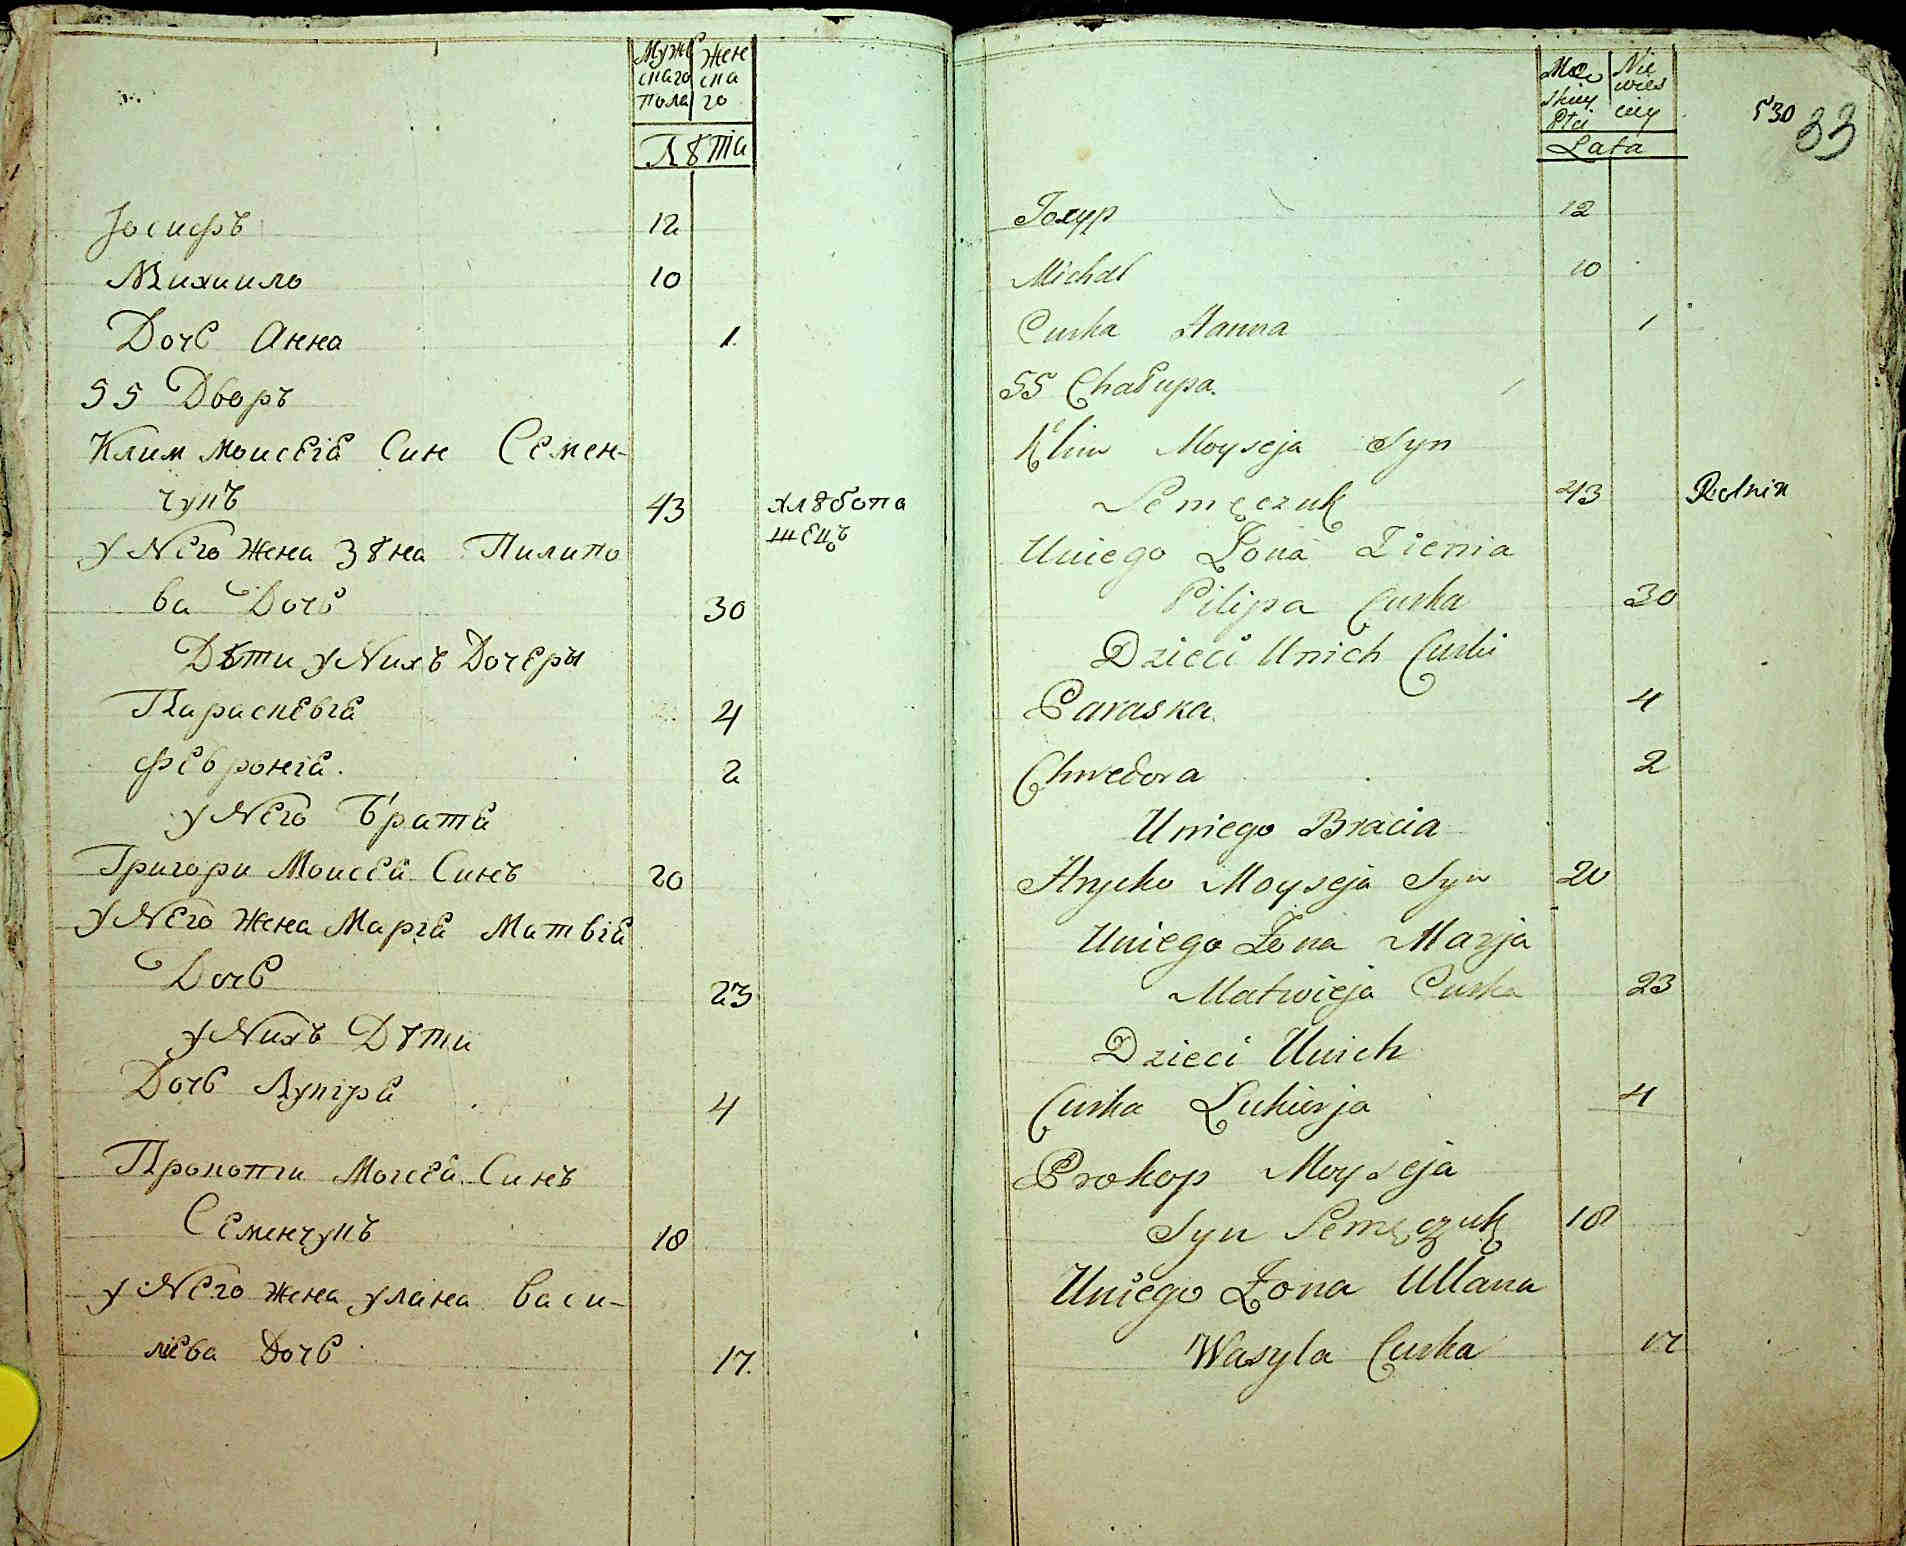 Мужескаго пола
Женскаго
Лѣта
Іосифъ 12
Михаило 10
Дочь Анна 1.
55 Дворъ
Клим Моисеія Син Семен-
чукъ 43 хлѣбопашецъ
у Него жена Зѣна Пилипо
ва Дочь 30
Дѣти у Нихъ Дочеры
Параскевіа 4
Февроніа. 2
у Него Брата
Григори Моисеа Синъ 20
у Него жена Маріа Матвіа
Дочь 23
у Нихъ Дѣти
Дочь Лукіра 4
Прокопіи Моісеа Синъ
Семенчукъ 18
у Него жена улана васи-
лева Дочь 17.
530 33
Męskiey Płci
Niewiesciey
Lata
Iozyp 12
Michał 10
Curka Hanna 1
55 Chałupa.
Klim Moyseja Syn
Semęczuk 43 Rolnik
Uniego Żona Zienia
Pilipa Curka 30
Dzieci Unich Curki
Paraska 4
Chwedora 2
Uniego Bracia
Hrycko Moyseja Syn 20
Uniego Żona Marja
Matwieja Curka 23
Dzieci Unich
Curka Lukierja 4
Prokop Moyseja
Syn Semęczuk 18
Uniego Żona Ullana
Wasyla Curka 17